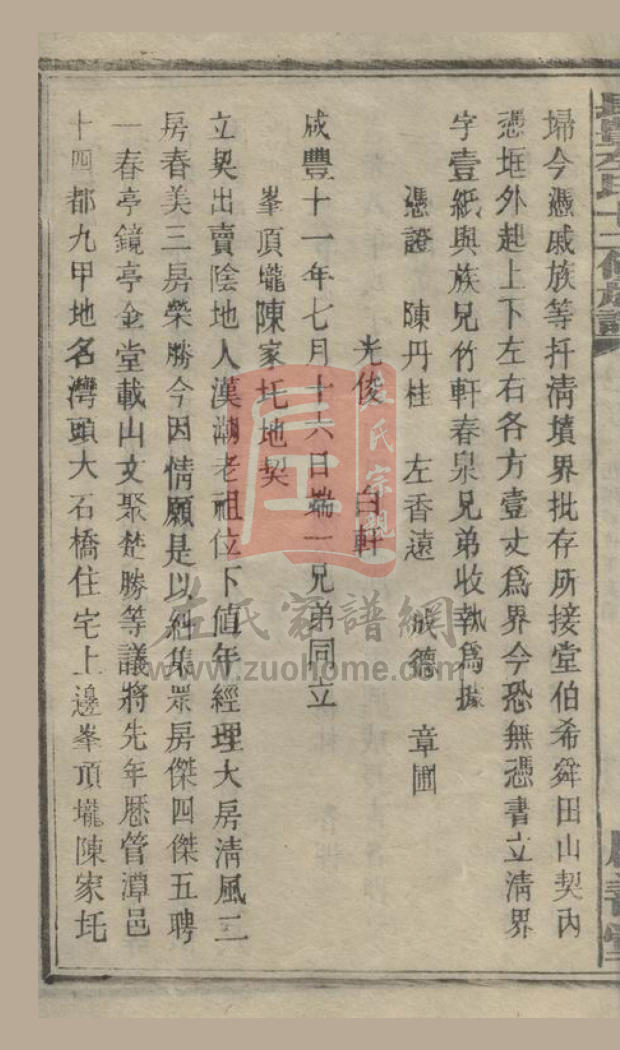 埽今憑戚族等扦淸墳界批存所接堂伯希舜田山契內
憑堀外起上下左右各方壹丈爲界今恐無憑書立淸界
字壹紙與族兄竹軒春泉兄弟收執爲據
憑證 陳丹桂 左香遠 成德 章圃
光俊 白軒
咸豐十一年七月十六日端一兄弟同立
峯頂壠陳家圫地契
立契出賣陰地人漢湖老祖位下値年經理大房淸風二
房春美三房榮勝今因情願是以糾集眾房傑四傑五聘
一春亭鏡亭金堂載山文聚楚勝等議將先年厯管潭邑
十四都九甲地名灣頭大石橋住宅上邊峯頂壠陳家圫
左氏宗親
左氏家譜網
www.zuohome.com